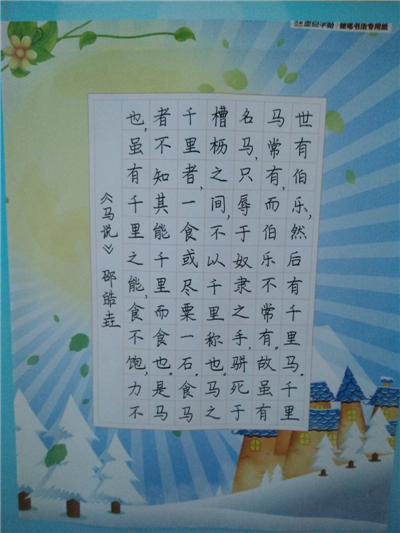 硬笔书法专用纸
世有伯乐,然后有千里马。千里
马常有,而伯乐不常有。故虽有
名马,只辱于奴隶之手,骈死于
槽枥之间,不以千里称也。马之
千里者,一食或尽粟一石。食马
者不知其能千里而食也。是马
也,虽有千里之能,食不饱,力不
《马说》 邵皓垚